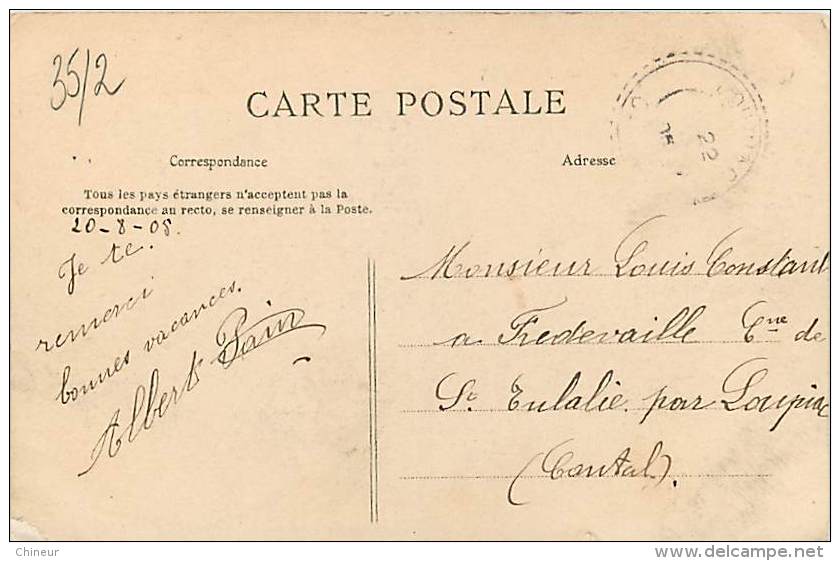 35/2
CARTE POSTALE
Correspondance
Adresse
Tous les pays étrangers n'acceptent pas la
correspondance au recto, se renseigner à la Poste.
20-8-05.
Je te.
remerci
bonnes vacances.
Albert Pain
22
Monsieur Louis Constant
a Fredevaille Cne de
St Eulalie par Loupiac
(Cantal).
Chineur
www.delcampe.net